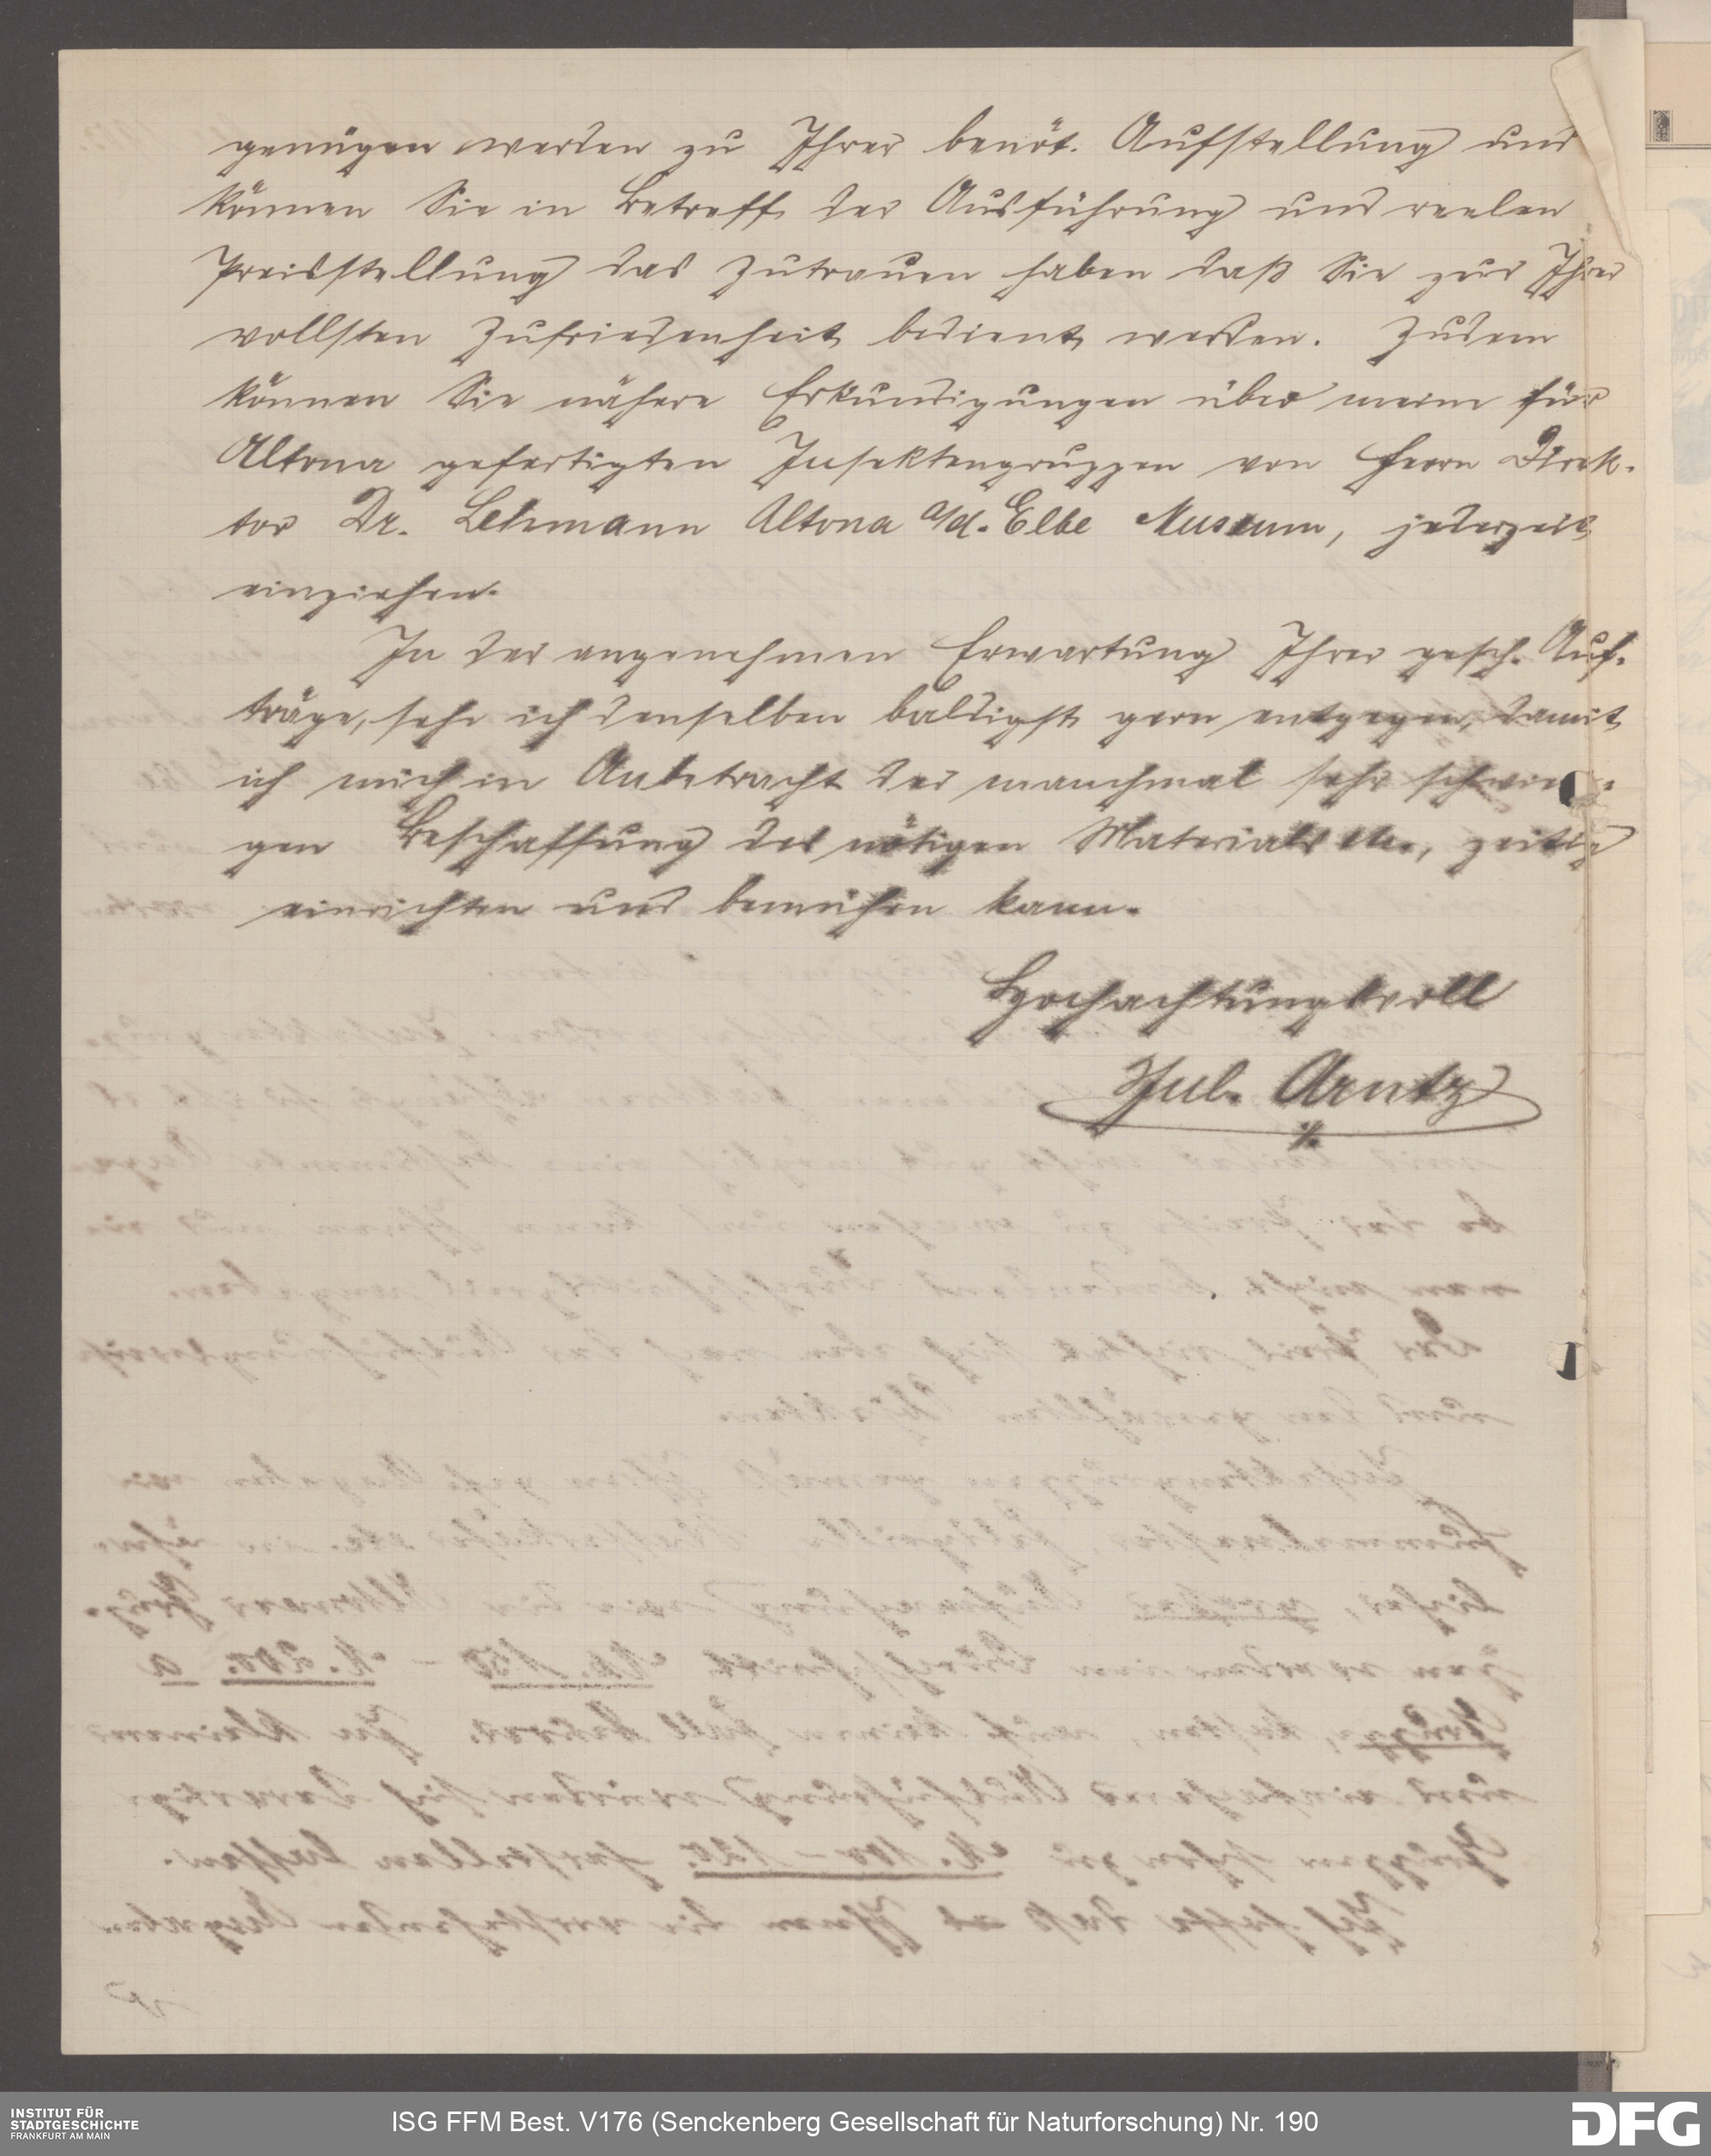 genügen werden zu Ihrer benöt. Aufstellung und
können Sie in Betreff der Ausführung und reelen
Preisstellung das Zutrauen haben daß Sie zur Ihrer
vollsten Zufriedenheit bedient werden. Zudem
können Sie nähere Erkundigungen über meine für
Altona gefertigten Insektengruppen von Herrn Direk-
tor Dr. Lehmann Altona a/d. Elbe Museum, jederzeit
einziehen.
In der angenehmen Erwartung Ihrer gesch. Auf-
träge, sehe ich denselben baldigst gern entgegen, damit
ich mich in Anbetracht der manchmal sehr schwieri-
gen Beschaffung des nötigen Materials etc., zeitig
einrichten und bemühen kann.
Hochachtungsvoll
Jul. Arntz
INSTITUT FÜR
STADTGESCHICHTE
FRANKFURT AM MAIN
ISG FFM Best. V176 (Senckenberg Gesellschaft für Naturforschung) Nr. 190
DFG